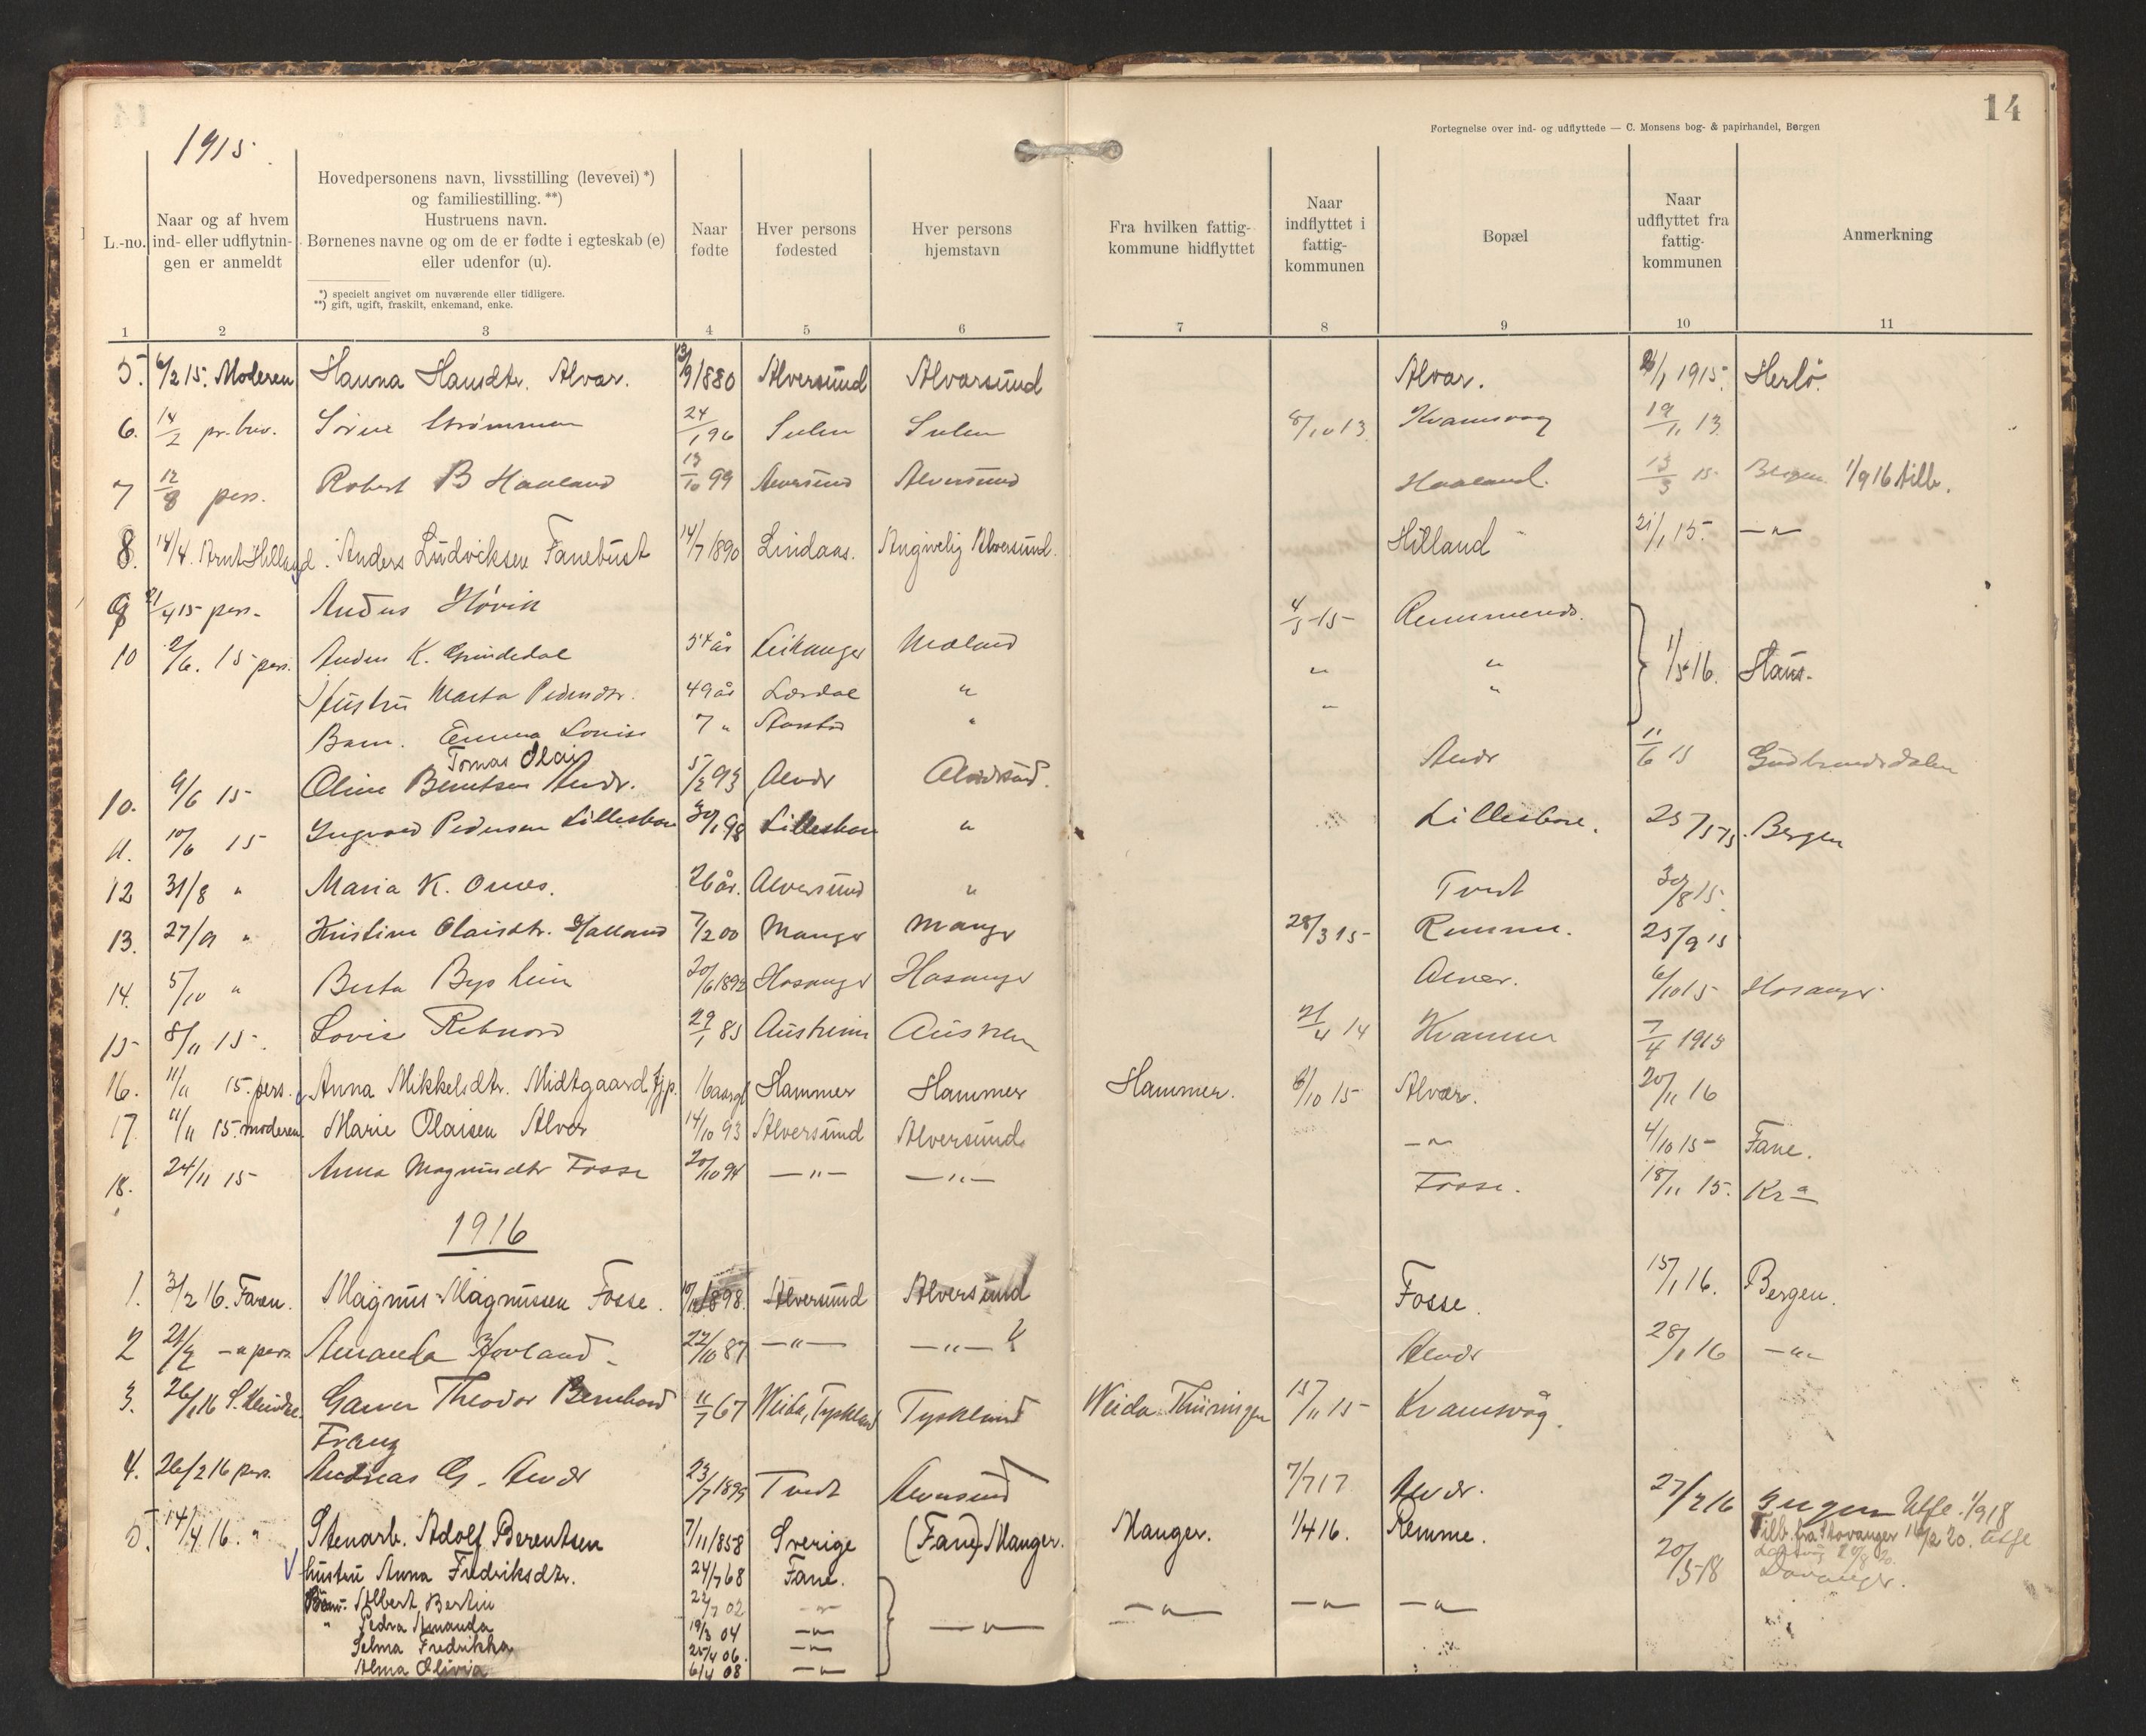 14
1915.
Fortegnelse over ind- og udflyttede — C. Monsens bog- & papirhandel, Bergen
L.-no.
Naar og af hvem
ind- eller udflytnin-
gen er anmeldt
Hovedpersonens navn, livsstilling (levevei) *)
og familiestilling. **)
Hustruens navn.
Børnenes navne og om de er fødte i egteskab (e)
eller udenfor (u).
*) specielt angivet om nuværende eller tidligere.
**) gift, ugift, fraskilt, enkemand, enke.
Naar
fødte
Hver persons
fødested
Hver persons
hjemstavn
Fra hvilken fattig-
kommune hidflyttet
Naar
indflyttet i
fattig-
kommunen
Bopæl
Naar
udflyttet fra
fattig-
kommunen
Anmerkning
1 2 3 4 5 6 7 8 9 10 11
5. 6/2 15. Moderen Hanna Hansdtr. Alvær. 13/9 1880 Alversund Alversund Alvær. 1915. Herlö.
6. 14/2 pr. brev. Sörine Strömmen 24/1 96 Sulen Sulen 8/10 13 Kvamsvaag 19/11 13
7 12/8 pers. Robert B Haaland 13/10 99 Alversund Alversund Haaland. 13/3 15 Bergen 1/9 16 tilb.
8. 14/4. Arnt Hilland. Anders Ludviksen Fanebust 14/7 1890 Lindaas. Angivelig Alversund. Hilland 21/1 15. —"—
9 21/4 15 pers. Hövik 4/5 15
10 2/6. 15 pers. Anders K. Grindedal 54 år Leikanger Mæland " " 1/5 16. Haus.
Hustru Marta Pedersdtr. 49 år Lærdal " " "
Barn. Emma Louise 7 " "
Tomas Olai
10. 9/6 15 Oline Berntsen Alvær. 5/2 93 Alvær Alversund. Alvær 11/6 15 Gudbrandsdalen
11. 10/6 15 Ingvald Pedersen Lillesbøe 30/1 98 Lillesbøe " Lillesbøe. 25/5 15 Bergen
12 31/8 " Maria K. Ones. 26 år. Alversund " Tvedt 30/8 15.
13. 27/9 " Kristine Olaisdtr. Halland 7/2 00 Manger Manger 28/3 15 Remme. 25/9 15
14. 5/10 " Berta Bysheim 20/6 1892 Hosanger Hosanger Alvær. 6/10 15 Hosanger
15 8/11 15. Lovise Rebnord 29/1 85 Austrheim Austrheim 21/4 14 Kvamme 7/4 1915
16. 11/11 15. pers. Anna Mikkelsdtr. Midtgaard tjp. 16 aarg. Hammer Hammer Hammer. 6/10 15 Alvær. 20/11 16
17. 11/11 15. moderen Marie Olaisen Alvær 14/10 93 Alversund Alversund. —"— 4/10 15 Fane.
18. 24/11 15 Anna Magnusdtr Fosse 20/10 94 —"— —"— Fosse. 18/11 15. Kra
1916
1. 3/2 16. Faren. Magnus Magnussen Fosse. 1898. Alversund Alversund Fosse. 15/1 16. Bergen.
2 —" pers. Amanda Hovland 22/10 87 —"— —"— Alvær 28/1 16 —"—
3. Theodor Bernhard 11/7 67 Weida, Tyskland Tyskland Weida Thüringen 15/11 15 Kvamsvåg.
Franz
4. 26/2 16 pers. Andreas G. Alvær 23/7 1899 Tvedt Alversund 7/7 17 Alvær. 27/2 16 Bergen Utfl. 1/9 18
5. 14/4 16. " Stenarb. Adolf Berentsen 7/11 1858 Sverige (Fane) Manger. Manger. 1/4 16. Remme. 20/5 18 Tilb. fra Stavanger 16/2 20. Utfl
hustru Anna Fredriksdtr. 24/7 68 Fane.
Børn: Albert Bertin 22/7 02 —"— —"— —"— —"—
" Pedra Amanda 19/3 04 —"— —"—
Selma Fredrikka 25/4 06. —"—
Alma Olivia 6/4 08 —"—